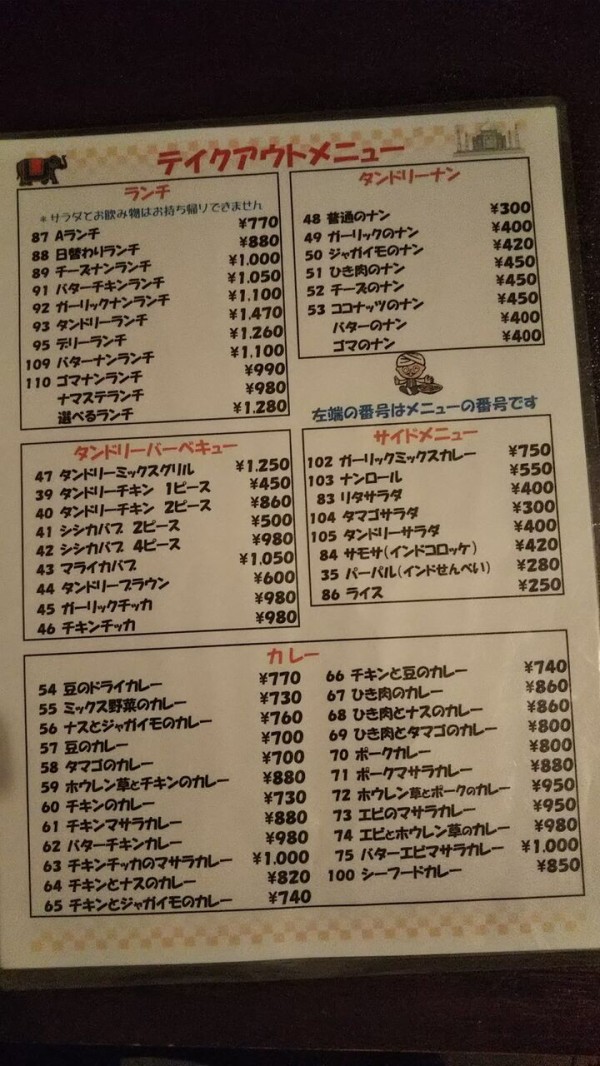 テイクアウトメニュー
ランチ
*サラダとお飲み物はお持ち帰りできません
87 Aランチ ¥770
88 日替わりランチ ¥880
89 チーズナンランチ ¥1.000
91 バターチキンランチ ¥1.050
92 ガーリックナンランチ ¥1.100
93 タンドリーランチ ¥1.470
95 デリーランチ ¥1.260
109 バターナンランチ ¥1.100
110 ゴマナンランチ ¥990
ナマステランチ ¥980
選べるランチ ¥1.280
タンドリーナン
48 普通のナン ¥300
49 ガーリックのナン ¥400
50 ジャガイモのナン ¥420
51 ひき肉のナン ¥450
52 チーズのナン ¥450
53 ココナッツのナン ¥450
バターのナン ¥400
ゴマのナン ¥400
左端の番号はメニューの番号です
タンドリーバーベキュー
47 タンドリーミックスグリル ¥1.250
39 タンドリーチキン 1ピース ¥450
40 タンドリーチキン 2ピース ¥860
41 シシカバブ 2ピース ¥500
42 シシカバブ 4ピース ¥980
43 マライカバブ ¥1.050
44 タンドリープラウン ¥600
45 ガーリックチッカ ¥980
46 チキンチッカ ¥980
サイドメニュー
102 ガーリックミックスカレー ¥750
103 ナンロール ¥550
83 リタサラダ ¥400
104 タマゴサラダ ¥300
105 タンドリーサラダ ¥400
84 サモサ(インドコロッケ) ¥420
35 パーパル(インドせんべい) ¥280
86 ライス ¥250
カレー
54 豆のドライカレー ¥770
55 ミックス野菜のカレー ¥730
56 ナスとジャガイモのカレー ¥760
57 豆のカレー ¥700
58 タマゴのカレー ¥700
59 ホウレン草とチキンのカレー ¥880
60 チキンのカレー ¥730
61 チキンマサラカレー ¥880
62 バターチキンカレー ¥980
63 チキンチッカのマサラカレー ¥1.000
64 チキンとナスのカレー ¥820
65 チキンとジャガイモのカレー ¥740
66 チキンと豆のカレー ¥740
67 ひき肉のカレー ¥860
68 ひき肉とナスのカレー ¥860
69 ひき肉とタマゴのカレー ¥800
70 ポークカレー ¥800
71 ポークマサラカレー ¥880
72 ホウレン草とポークのカレー ¥950
73 エビのマサラカレー ¥950
74 エビとホウレン草のカレー ¥980
75 バターエビマサラカレー ¥1.000
100 シーフードカレー ¥850